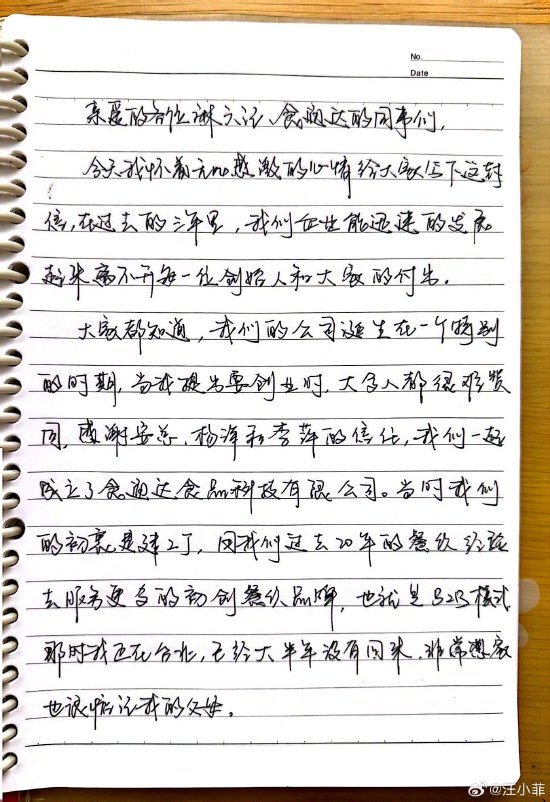 No.
Date
亲爱的各位麻六记、食通达的同事们,
今天我怀着无比感激的心情给大家写下这封
信,在过去的三年里,我们企业能迅速的发展
起来离不开每一位创始人和大家的付出。
大家都知道,我们的公司诞生在一个特别
的时期,当我提出要创业时,大多人都很难赞
同,感谢安总、杨泽和李萍的信任,我们一起
成立了食通达食品科技有限公司。当时我们
的初衷是建工厂,用我们过去20年的餐饮经验
去服务更多的初创餐饮品牌,也就是B2B模式
那时我还在台北,已经大半年没有回来,非常想家
也很惦记我的父母。
@汪小菲